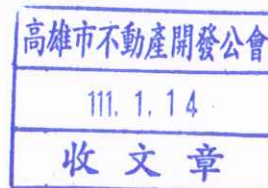 高雄市不動產開發公會
111. 1. 14
收文章